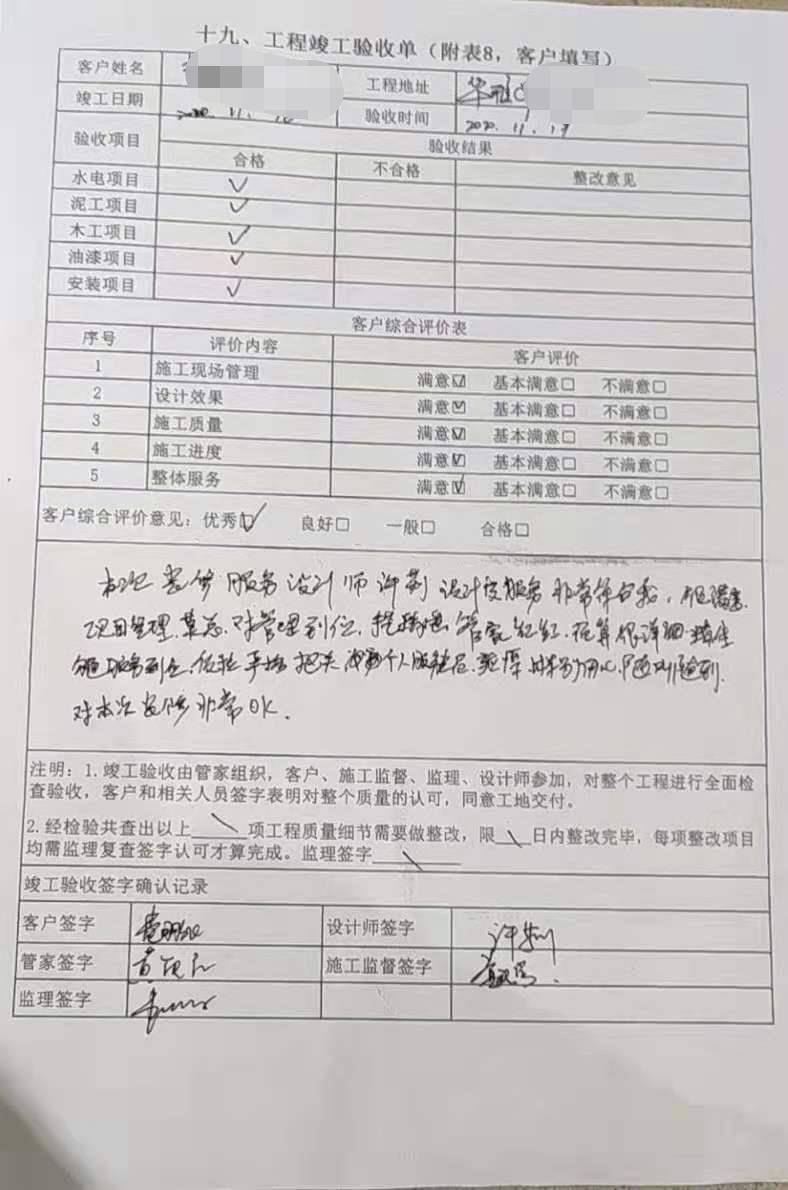 十九、工程竣工验收单（附表8，客户填写）
客户姓名 工程地址 华
竣工日期 验收时间 2020.11.19
验收项目 验收结果
合格 不合格 整改意见
水电项目 ✓
泥工项目 ✓
木工项目 ✓
油漆项目 ✓
安装项目 ✓
客户综合评价表
序号 评价内容 客户评价
1 施工现场管理 满意☑ 基本满意□ 不满意□
2 设计效果 满意☑ 基本满意□ 不满意□
3 施工质量 满意☑ 基本满意□ 不满意□
4 施工进度 满意☑ 基本满意□ 不满意□
5 整体服务 满意☑ 基本满意□ 不满意□
客户综合评价意见：优秀☑ 良好□ 一般□ 合格□
本次装修服务设计师许荆设计及服务非常
项目管理 管理到位 管家红红 很详细
服务到位 把关 个人
对本次装修非常OK.
注明：1.竣工验收由管家组织，客户、施工监督、监理、设计师参加，对整个工程进行全面检
查验收，客户和相关人员签字表明对整个质量的认可，同意工地交付。
2.经检验共查出以上 \ 项工程质量细节需要做整改，限 \ 日内整改完毕，每项整改项目
均需监理复查签字认可才算完成。监理签字 \
竣工验收签字确认记录
客户签字 设计师签字 许荆
管家签字 施工监督签字
监理签字